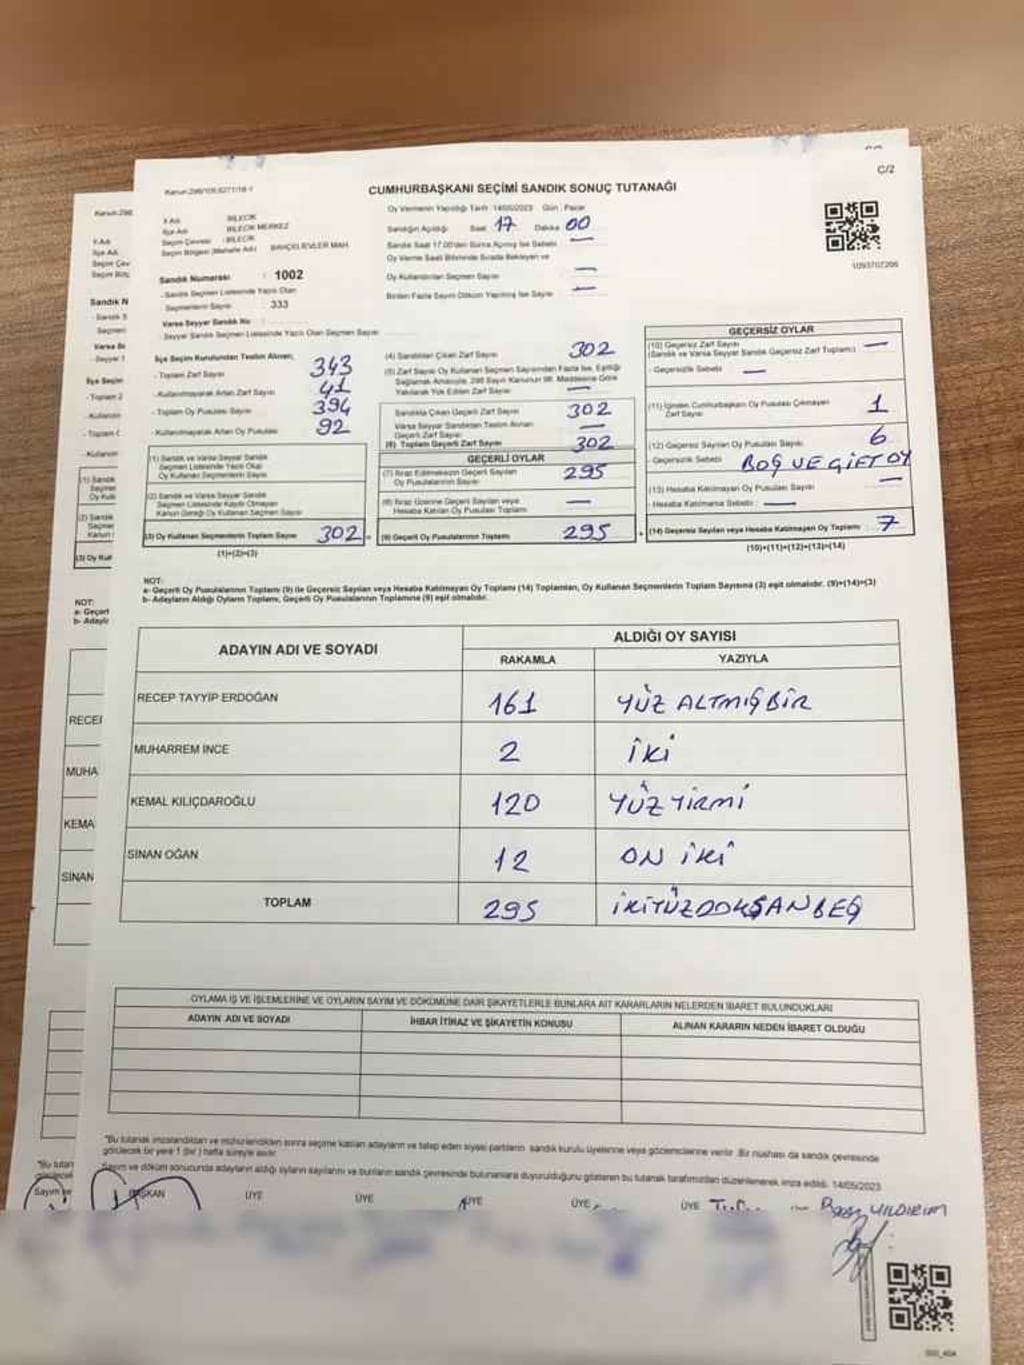 C/2
CUMHURBAŞKANI SEÇİMİ SANDIK SONUÇ TUTANAĞI
Oy Vermenin Yapıldığı Tarih : 14/05/2023 Gün : Pazar
Sandığın Açıldığı Saat 17 Dakika 00
Sandık Saat 17.00'den Sonra Açılmış İse Sebebi —
Oy Verme Saati Bitiminde Sırada Bekleyen ve
Oy Kullandırılan Seçmen Sayısı —
Birden Fazla Sayım Döküm Yapılmış İse Sayısı —
1093707206
İl Adı : BİLECİK
İlçe Adı : BİLECİK MERKEZ
Seçim Çevresi : BİLECİK
Seçim Bölgesi (Mahalle Adı) : BAHÇELİEVLER MAH.
Sandık Numarası : 1002
- Sandık Seçmen Listesinde Yazılı Olan
Seçmenlerin Sayısı : 333
Varsa Seyyar Sandık No :
- Seyyar Sandık Seçmen Listesinde Yazılı Olan Seçmen Sayısı :
İlçe Seçim Kurulundan Teslim Alınan;
- Toplam Zarf Sayısı : 343
- Kullanılmayarak Artan Zarf Sayısı : 41
- Toplam Oy Pusulası Sayısı : 394
- Kullanılmayarak Artan Oy Pusulası : 92
(1) Sandık ve Varsa Seyyar Sandık
Seçmen Listesinde Yazılı Olup
Oy Kullanan Seçmenlerin Sayısı
(2) Sandık ve Varsa Seyyar Sandık
Seçmen Listesinde Kayıtlı Olmayan
Kanun Gereği Oy Kullanan Seçmen Sayısı
(3) Oy Kullanan Seçmenlerin Toplam Sayısı 302
(1)+(2)=(3)
(4) Sandıktan Çıkan Zarf Sayısı : 302
(5) Zarf Sayısı Oy Kullanan Seçmen Sayısından Fazla İse, Eşitliği
Sağlamak Amacıyla, 298 Sayılı Kanunun 98. Maddesine Göre
Yakılarak Yok Edilen Zarf Sayısı : —
Sandıkta Çıkan Geçerli Zarf Sayısı : 302
Varsa Seyyar Sandıktan Teslim Alınan
Geçerli Zarf Sayısı : —
(6) Toplam Geçerli Zarf Sayısı : 302
GEÇERLİ OYLAR
(7) İtiraz Edilmeksizin Geçerli Sayılan
Oy Pusulalarının Sayısı : 295
(8) İtiraz Üzerine Geçerli Sayılan veya
Hesaba Katılan Oy Pusulası Toplamı —
(9) Geçerli Oy Pusulalarının Toplamı 295
GEÇERSİZ OYLAR
(10) Geçersiz Zarf Sayısı
(Sandık ve Varsa Seyyar Sandık Geçersiz Zarf Toplamı) : —
- Geçersizlik Sebebi : —
(11) İçinden Cumhurbaşkanı Oy Pusulası Çıkmayan
Zarf Sayısı 1
(12) Geçersiz Sayılan Oy Pusulası Sayısı 6
- Geçersizlik Sebebi : BOŞ VE ÇİFT OY
(13) Hesaba Katılmayan Oy Pusulası Sayısı : —
- Hesaba Katılmama Sebebi : —
(14) Geçersiz Sayılan veya Hesaba Katılmayan Oy Toplamı : 7
(10)+(11)+(12)+(13)=(14)
NOT:
a- Geçerli Oy Pusulalarının Toplamı (9) ile Geçersiz Sayılan veya Hesaba Katılmayan Oy Toplamı (14) Toplamları, Oy Kullanan Seçmenlerin Toplam Sayısına (3) eşit olmalıdır. (9)+(14)=(3)
b- Adayların Aldığı Oyların Toplamı, Geçerli Oy Pusulalarının Toplamına (9) eşit olmalıdır.
ADAYIN ADI VE SOYADI
ALDIĞI OY SAYISI
RAKAMLA YAZIYLA
RECEP TAYYİP ERDOĞAN 161 YÜZ ALTMIŞ BİR
MUHARREM İNCE 2 İKİ
KEMAL KILIÇDAROĞLU 120 YÜZ YİRMİ
SİNAN OĞAN 12 ON İKİ
TOPLAM 295 İKİYÜZDOKSANBEŞ
OYLAMA İŞ VE İŞLEMLERİNE VE OYLARIN SAYIM VE DÖKÜMÜNE DAİR ŞİKAYETLERLE BUNLARA AİT KARARLARIN NELERDEN İBARET BULUNDUKLARI
ADAYIN ADI VE SOYADI İHBAR İTİRAZ VE ŞİKAYETİN KONUSU ALINAN KARARIN NEDEN İBARET OLDUĞU
"Bu tutanak imzalandıktan ve mühürlendikten sonra seçime katılan adayların ve talep eden siyasi partilerin sandık kurulu üyelerine veya gözlemcilerine verilir. Bir nüshası da sandık çevresinde
görülecek bir yere 1 (bir) hafta süreyle asılır.
Sayım ve döküm sonucunda adayların aldığı oyların sayılarını ve bunların sandık çevresinde bulunanlara duyurulduğunu gösteren bu tutanak tarafımızdan düzenlenerek imza edildi. 14/05/2023
BAŞKAN ÜYE ÜYE ÜYE ÜYE ÜYE YILDIRIM